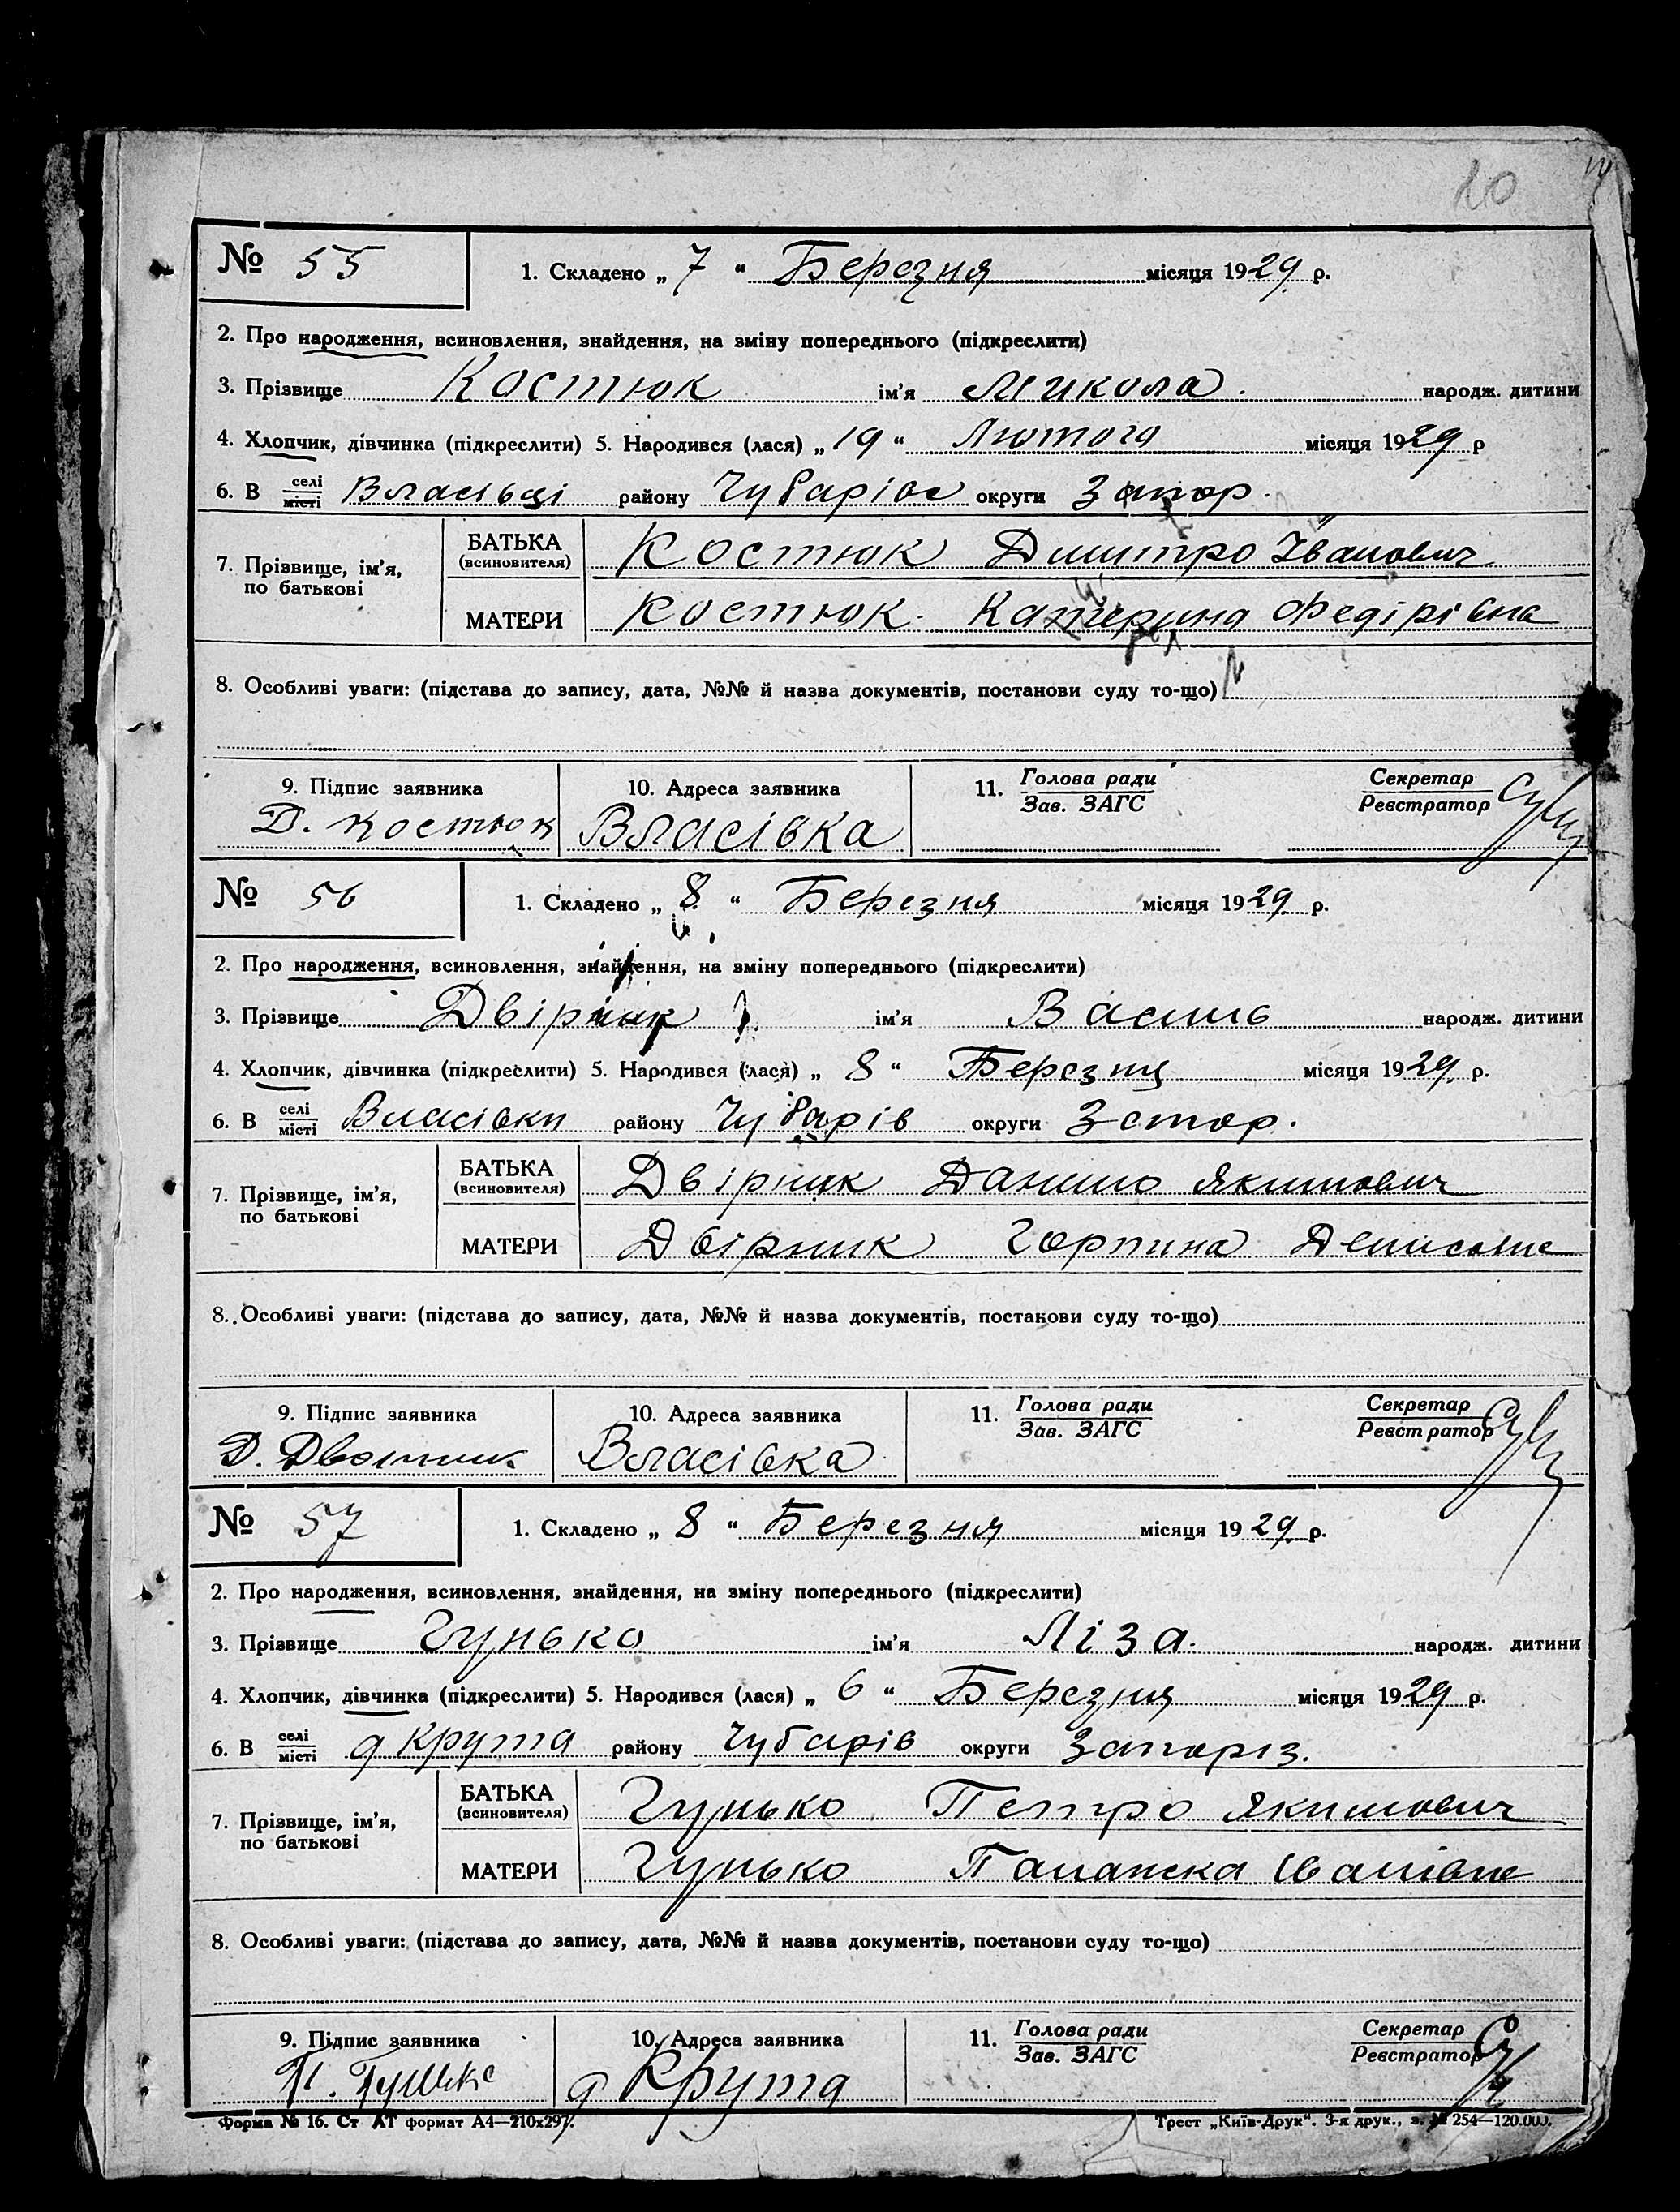 20
№ 55 1. Складено „ 7 “ Березня місяця 1929 р.
2. Про народження, всиновлення, знайдення, на зміну попереднього (підкреслити)
3. Прізвище Костюк ім'я Микола. народж. дитини
4. Хлопчик, дівчинка (підкреслити) 5. Народився (лася) „ 19 “ Лютого місяця 1929 р
6. В селі/місті Власівці району Чубарівс округи Запор.
7. Прізвище, ім'я, по батькові БАТЬКА (всиновителя) Костюк Дмитро Іванович
МАТЕРИ Костюк. Катерина Федірівна
8. Особливі уваги: (підстава до запису, дата, №№ й назва документів, постанови суду то-що)
9. Підпис заявника 10. Адреса заявника 11. Голова ради/Зав. ЗАГС Секретар/Реєстратор
Д. Костюк Власівка
№ 56 1. Складено „ 8 “ Березня місяця 1929 р.
2. Про народження, всиновлення, знайдення, на зміну попереднього (підкреслити)
3. Прізвище Двірник ім'я Василь народж. дитини
4. Хлопчик, дівчинка (підкреслити) 5. Народився (лася) „ 8 “ Березня місяця 1929 р.
6. В селі/місті Власівки району Чубарів округи Запор.
7. Прізвище, ім'я, по батькові БАТЬКА (всиновителя) Двірник Данило Якимович
МАТЕРИ Двірник Горпина Денисовна
8. Особливі уваги: (підстава до запису, дата, №№ й назва документів, постанови суду то-що)
9. Підпис заявника 10. Адреса заявника 11. Голова ради/Зав. ЗАГС Секретар/Реєстратор
Д. Власівка
№ 57 1. Складено „ 8 “ Березня місяця 1929 р.
2. Про народження, всиновлення, знайдення, на зміну попереднього (підкреслити)
3. Прізвище Гунько ім'я Ліза. народж. дитини
4. Хлопчик, дівчинка (підкреслити) 5. Народився (лася) „ 6 “ Березня місяця 1929 р.
6. В селі/місті д Крута району Чубарів округи Запоріз.
7. Прізвище, ім'я, по батькові БАТЬКА (всиновителя) Гунько Петро Якимович
МАТЕРИ Гунько Палажка Іванівна
8. Особливі уваги: (підстава до запису, дата, №№ й назва документів, постанови суду то-що)
9. Підпис заявника 10. Адреса заявника 11. Голова ради/Зав. ЗАГС Секретар/Реєстратор
П. д Крута
Форма № 16. Ст АТ формат А4—210х297. Трест „Київ-Друк“. 3-я друк., з. № 254—120.000.